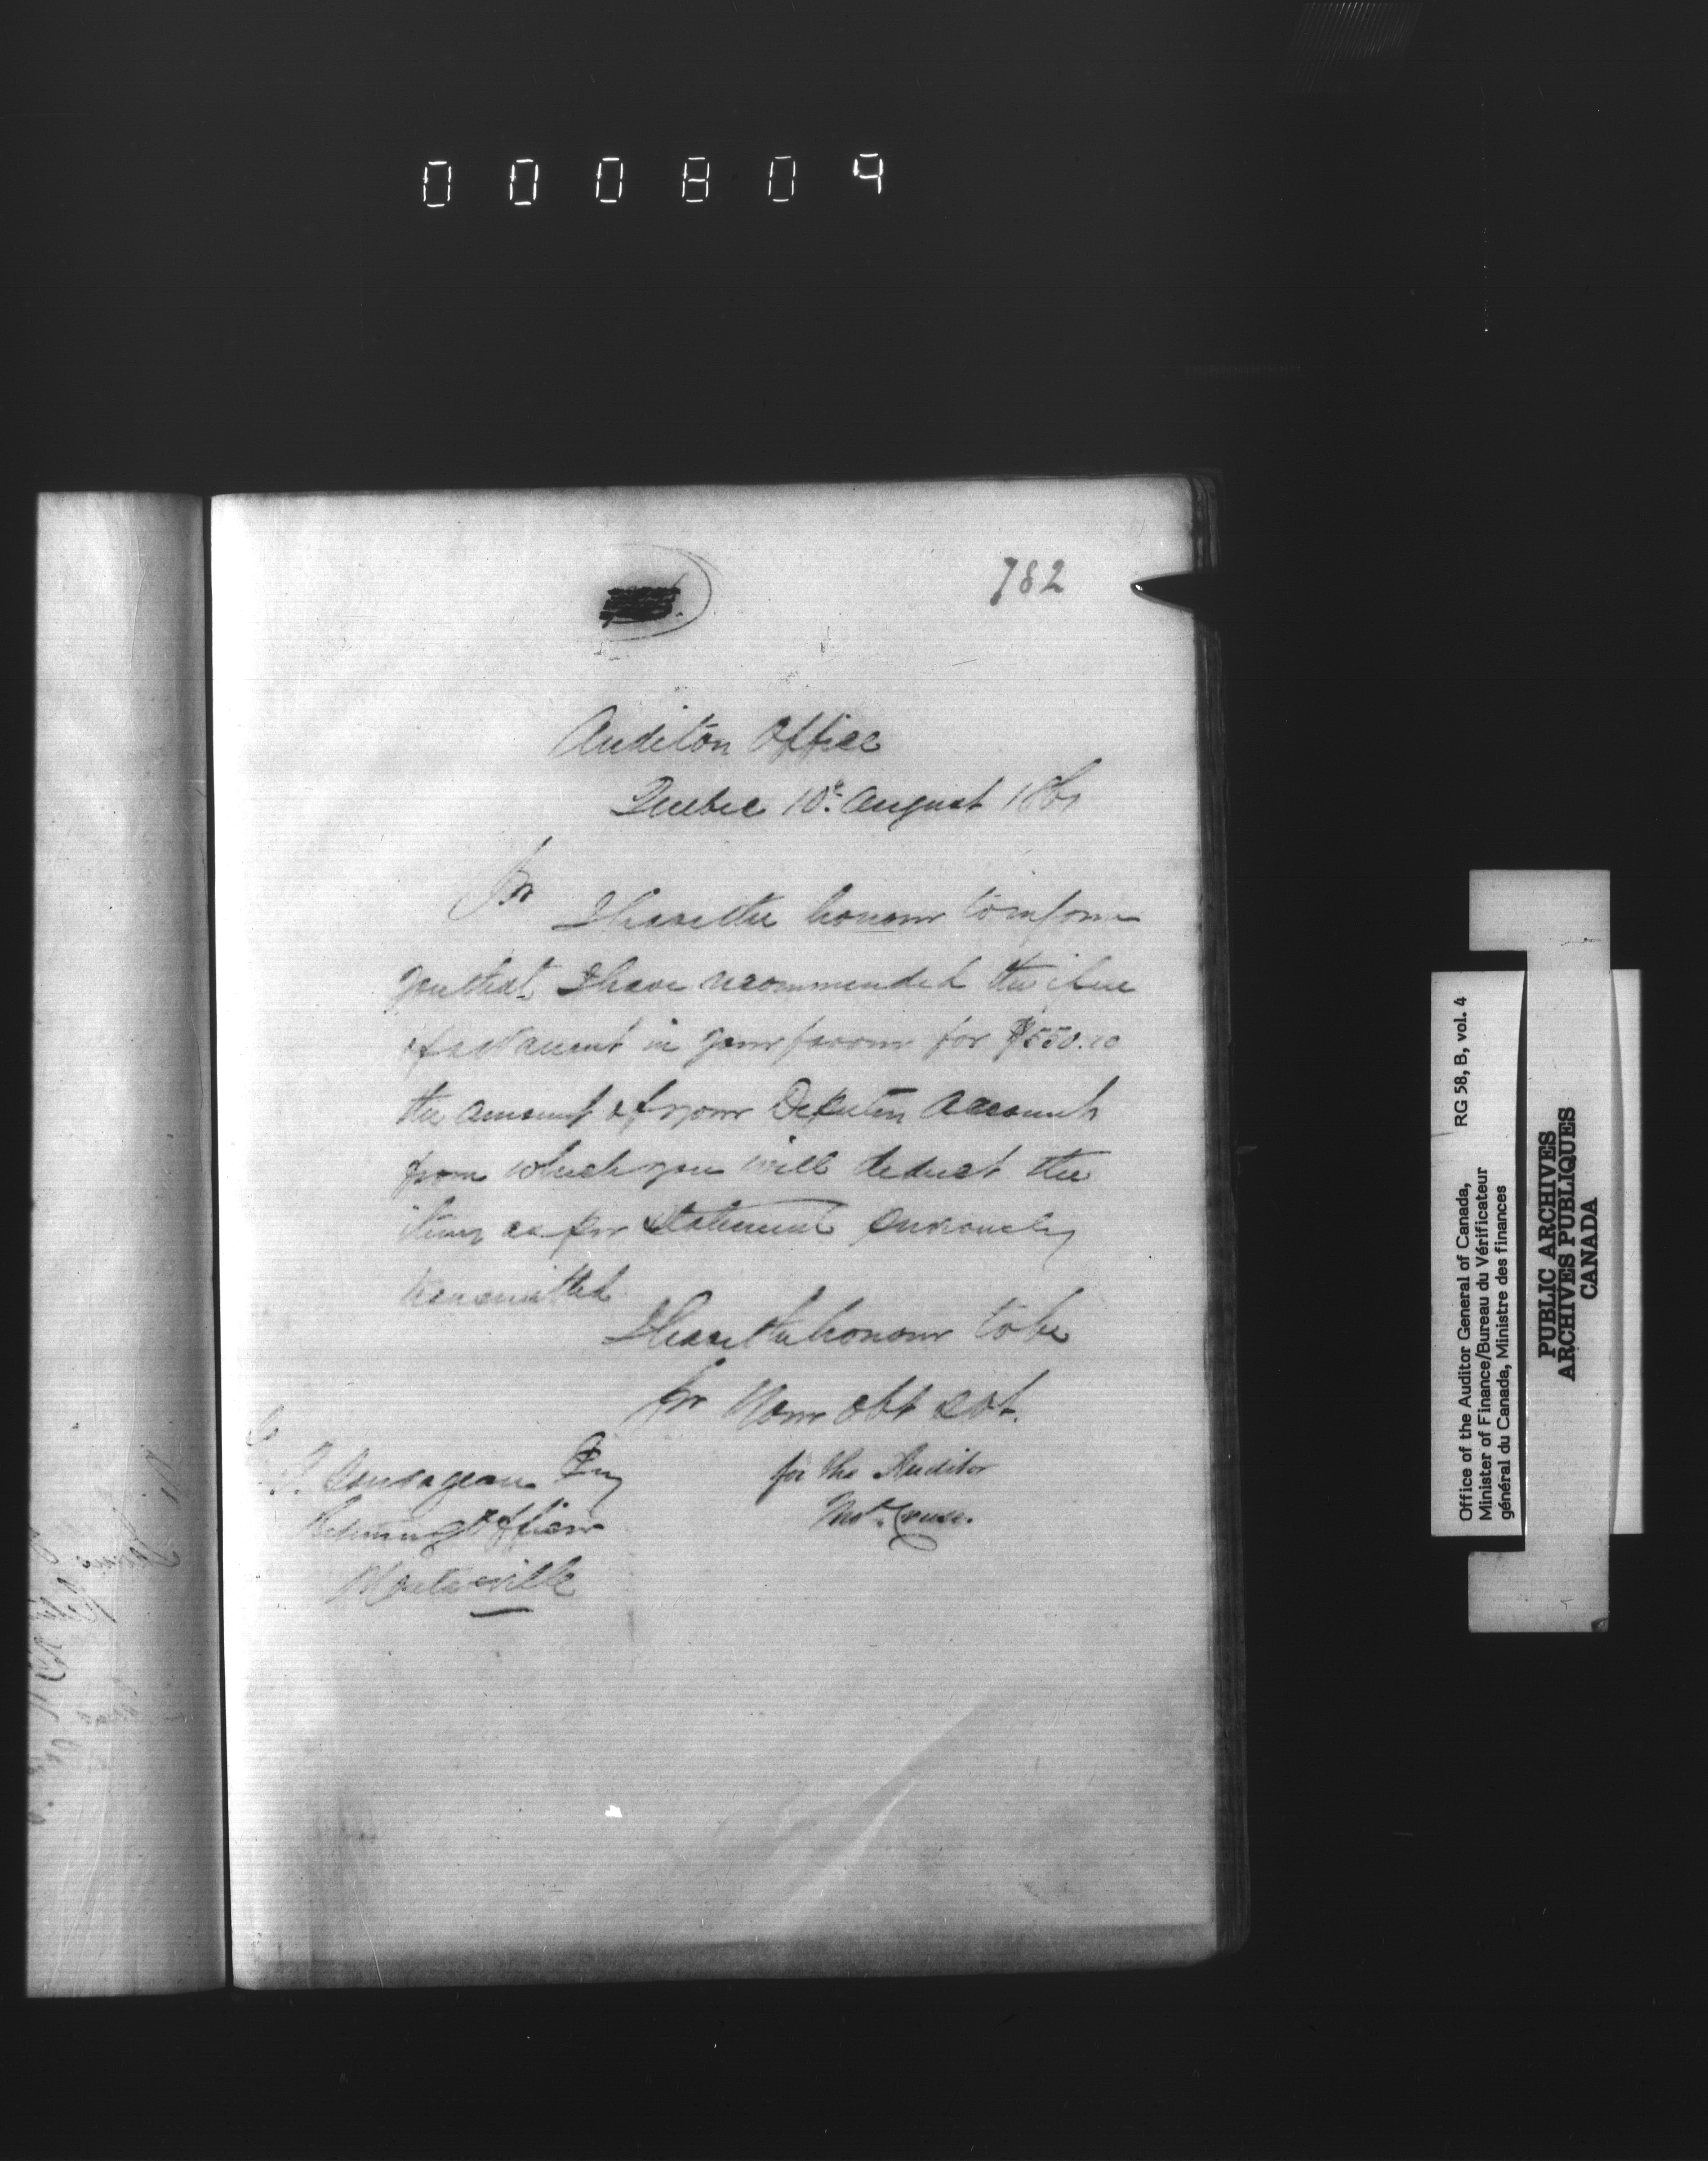 000804
782
Auditors Office
Quebec 10th August 1861
Sir
I have the honour to inform
you that I have recommended the issue
of a Warrant in your favour for $550.20
the amount of your Deputies Accounts
from which you will deduct the
items as per Statement previously
transmitted
I have the honour to be
Sir Your obt svt.
for the Auditor
Thos. Cruse.
Esq
Returning Officer
Office of the Auditor General of Canada, RG 58, B, vol. 4
Minister of Finance/Bureau du Vérificateur
général du Canada, Ministre des finances
PUBLIC ARCHIVES
ARCHIVES PUBLIQUES
CANADA